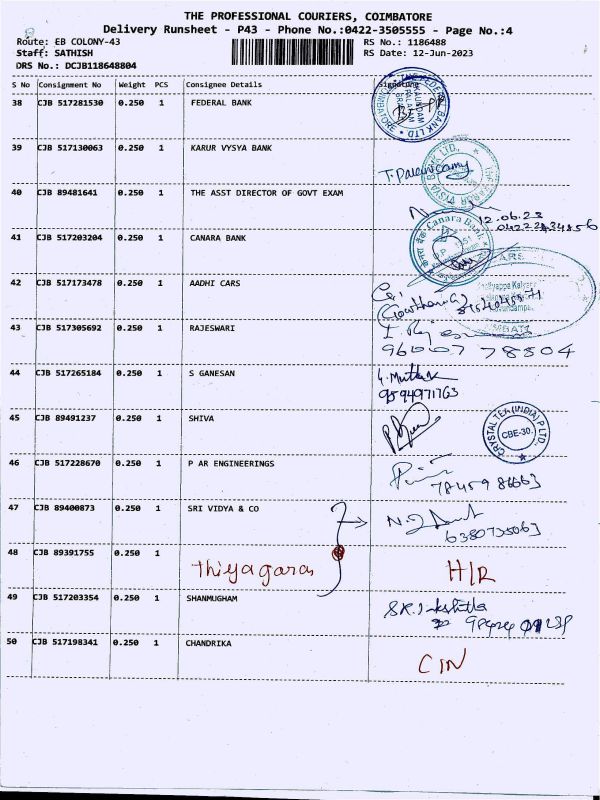 THE PROFESSIONAL COURIERS, COIMBATORE
Delivery Runsheet - P43 - Phone No.:0422-3505555 - Page No.:4
Route: EB COLONY-43 RS No.: 1186488
Staff: SATHISH RS Date: 12-Jun-2023
DRS No.: DCJB118648804
S No Consignment No Weight PCS Consignee Details Signature
38 CJB 517281530 0.250 1 FEDERAL BANK
39 CJB 517130063 0.250 1 KARUR VYSYA BANK
T. Palaniswamy
40 CJB 89481641 0.250 1 THE ASST DIRECTOR OF GOVT EXAM
12.06.23
41 CJB 517203204 0.250 1 CANARA BANK
Canara Bank
42 CJB 517173478 0.250 1 AADHI CARS
(Gowtham G)
43 CJB 517305692 0.250 1 RAJESWARI
96007 78804
44 CJB 517265184 0.250 1 S GANESAN
9594971763
45 CJB 89491237 0.250 1 SHIVA
CRYSTAL TEA (INDIA) P LTD.
CBE-30.
46 CJB 517228670 0.250 1 P AR ENGINEERINGS
7845986663
47 CJB 89400873 0.250 1 SRI VIDYA & CO
6380735063
48 CJB 89391755 0.250 1 Thiyagaras H/R
49 CJB 517203354 0.250 1 SHANMUGHAM
50 CJB 517198341 0.250 1 CHANDRIKA
CIN